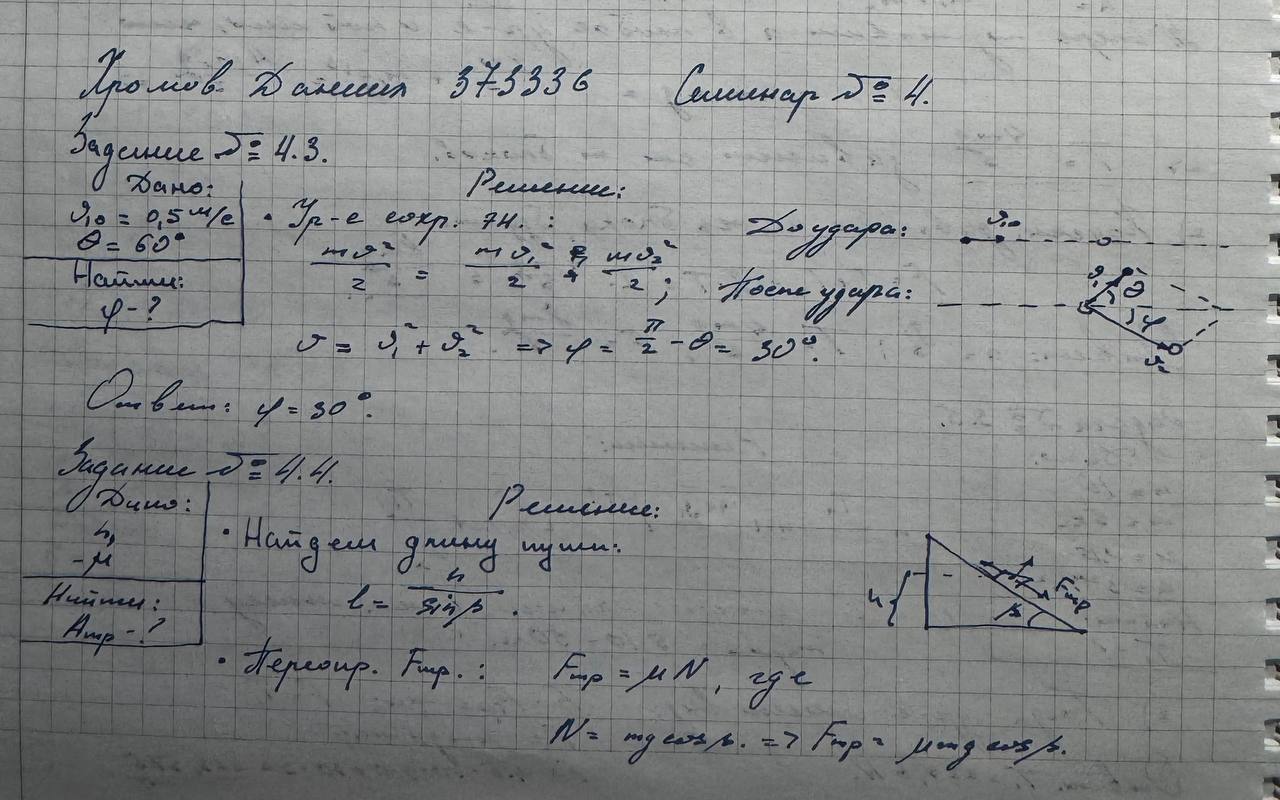 Хромов Даниил 373336 Семинар № 4.
Задание № 4.3.
Дано:
ϑ₁₀ = 0,5 м/с
θ = 60°
Найти:
φ - ?
Решение:
• Ур-е сохр. :
mϑ²/2 = mϑ₁²/2 + mϑ₂²/2 ;
ϑ = ϑ₁² + ϑ₂² => φ = π/2 - θ = 30°.
До удара:
ϑ₁₀
После удара:
ϑ₁ θ
φ
ϑ₂
Ответ: φ = 30°.
Задание № 4.4.
Дано:
h,
μ
Найти:
Aтр - ?
Решение:
• Найдем длину пути:
l = h/sinβ .
h β Fтр
• Fтр. : Fтр = μN, где
N = mg cosβ. => Fтр = μmg cosβ.